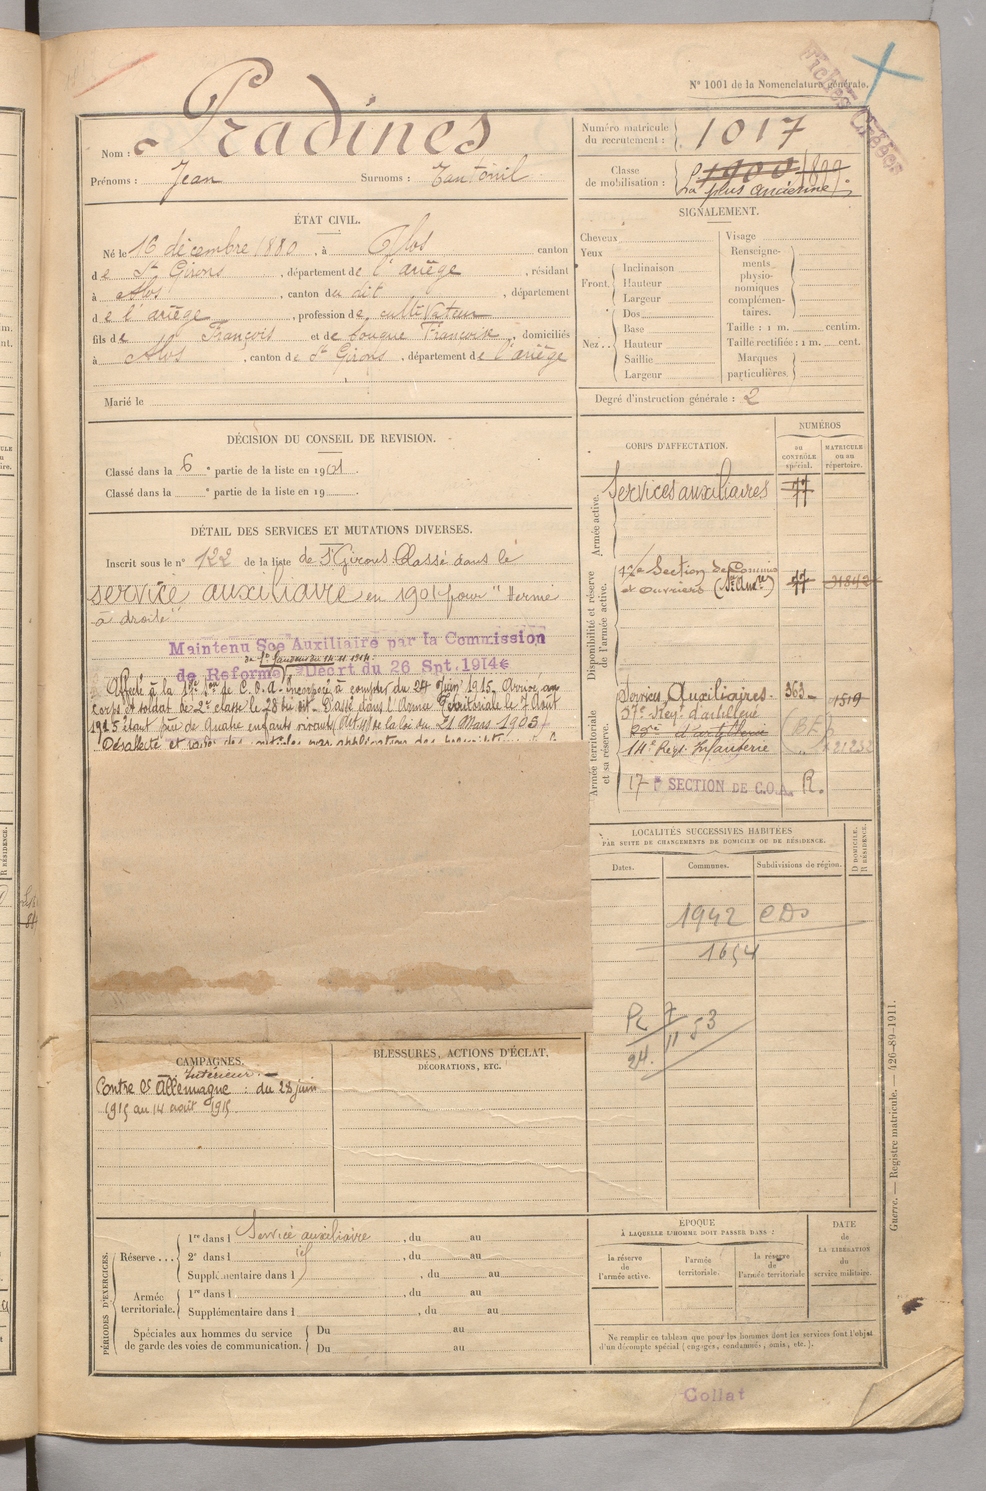 N° 1001 de la Nomenclature générale.
Fichés Classes
Nom : Pradines
Prénoms : Jean Surnoms :
Numéro matricule du recrutement : 1017
Classe de mobilisation : 1900 1899
la plus ancienne
ÉTAT CIVIL.
Né le 16 décembre 1880, à Alos canton
de St Girons, département de l'ariège, résidant
à Alos, canton du dit, département
de l'ariège, profession de cultivateur
fils de François et de Bouque Françoise, domiciliés
à Alos, canton de St Girons, département de l'ariège
Marié le
SIGNALEMENT.
Cheveux
Yeux
Front. Inclinaison
Hauteur
Largeur
Nez.. Dos
Base
Hauteur
Saillie
Largeur
Visage
Renseigne-
ments
physio-
nomiques
complémen-
taires.
Taille : 1 m. centim.
Taille rectifiée : 1 m. cent.
Marques
particulières.
Degré d'instruction générale : 2
DÉCISION DU CONSEIL DE REVISION.
Classé dans la 6e partie de la liste en 1901
Classé dans la ° partie de la liste en 19
DÉTAIL DES SERVICES ET MUTATIONS DIVERSES.
Inscrit sous le n° 122 de la liste de St Girons. Classé dans le
service auxiliaire en 1901 pour "Hernie
à droite"
Maintenu Sce Auxiliaire par la Commission
de Reforme Décrt du 26 Spt. 1914
Affecté à la 17e Son de C.O.A. Incorporé à compter du 24 Juin 1915. Arrivé au
corps et soldat de 2e classe le 28 du dit. Passé dans l'Armée Territoriale le 7 Août
1915 étant père de quatre enfants vivants (Art 48 de la loi du 21 Mars 1905)
CORPS D'AFFECTATION.
NUMÉROS
au
CONTRÔLE
spécial.
MATRICULE
ou au
répertoire.
Armée active.
Services auxiliaires 77
Disponibilité et réserve
de l'armée active.
17e Section de Commis
et ouvriers (St Auxre) 77 21842
Armée territoriale
et sa réserve.
Services Auxiliaires. 363 1519
57e Régt d'artillerie
14e Régt Infanterie 21232
17e SECTION DE C.O.A. R.
LOCALITÉS SUCCESSIVES HABITÉES
PAR SUITE DE CHANGEMENTS DE DOMICILE OU DE RÉSIDENCE.
Dates.
Communes.
Subdivisions de région.
D DOMICILE.
R RÉSIDENCE.
1942 CDo
1654
7
11 53
24.
CAMPAGNES.
Intérieur.
Contre l'Allemagne : du 28 juin
1915 au 14 août 1915.
BLESSURES, ACTIONS D'ÉCLAT,
DÉCORATIONS, ETC.
PÉRIODES D'EXERCICES.
Réserve... 1re dans l Service auxiliaire, du au
2e dans l id, du au
Supplémentaire dans l, du au
Armée
territoriale. 1re dans l, du au
Supplémentaire dans l, du au
Spéciales aux hommes du service
de garde des voies de communication. Du au
Du au
ÉPOQUE
À LAQUELLE L'HOMME DOIT PASSER DANS :
la réserve
de
l'armée active.
l'armée
territoriale.
la réserve
de
l'armée territoriale
DATE
de
LA LIBÉRATION
du
service militaire.
Ne remplir ce tableau que pour les hommes dont les services font l'objet
d'un décompte spécial (engagés, condamnés, omis, etc.).
Guerre. — Registre matricule. — 426-89-1911.
Collat